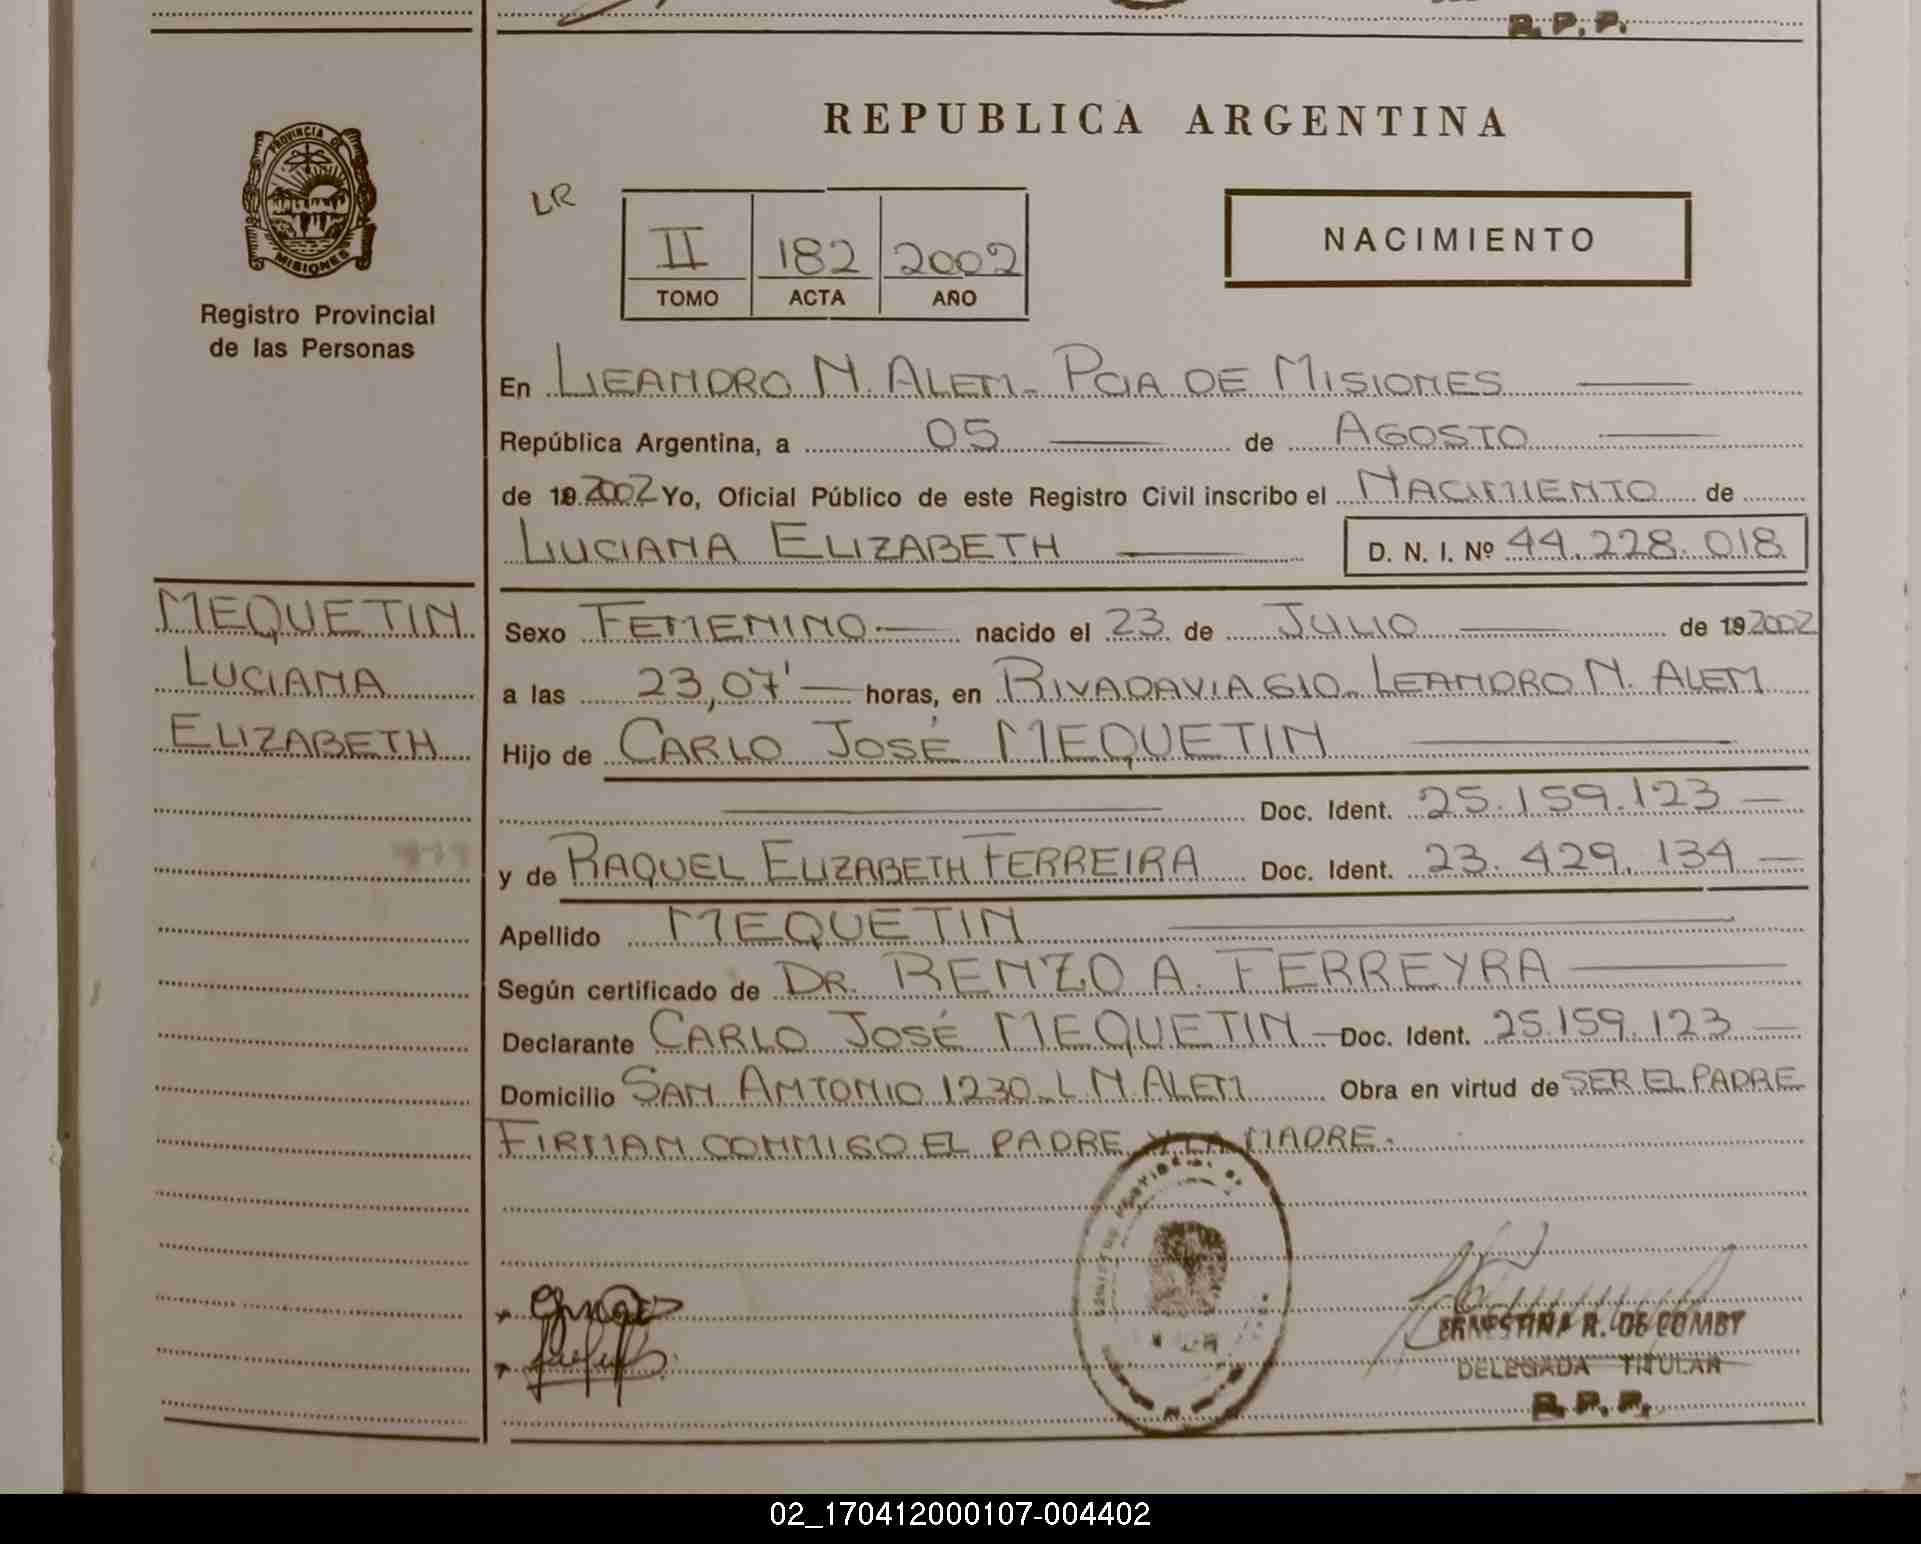 R. P. P.
REPUBLICA ARGENTINA
PROVINCIA DE
MISIONES
Registro Provincial
de las Personas
LR
II 182 2002
TOMO ACTA AÑO
NACIMIENTO
En LEANDRO N. ALEM - PCIA DE MISIONES
República Argentina, a 05 de AGOSTO
de 19 2002 Yo, Oficial Público de este Registro Civil inscribo el NACIMIENTO de
LUCIANA ELIZABETH D. N. I. Nº 44.228.018
MEQUETIN
LUCIANA
ELIZABETH
Sexo FEMENINO nacido el 23 de JULIO de 19 2002
a las 23,07' horas, en RIVADAVIA 610 - LEANDRO N. ALEM
Hijo de CARLO JOSÉ MEQUETIN
Doc. Ident. 25.159.123
y de RAQUEL ELIZABETH FERREIRA Doc. Ident. 23.429.134
Apellido MEQUETIN
Según certificado de DR. RENZO A. FERREYRA
Declarante CARLO JOSÉ MEQUETIN Doc. Ident. 25.159.123
Domicilio SAN ANTONIO 1230 - L. N. ALEM Obra en virtud de SER EL PADRE
FIRMAN CONMIGO EL PADRE Y LA MADRE.
ERNESTINA R. DE COMBY
DELEGADA TITULAR
R. P. P.
02_170412000107-004402